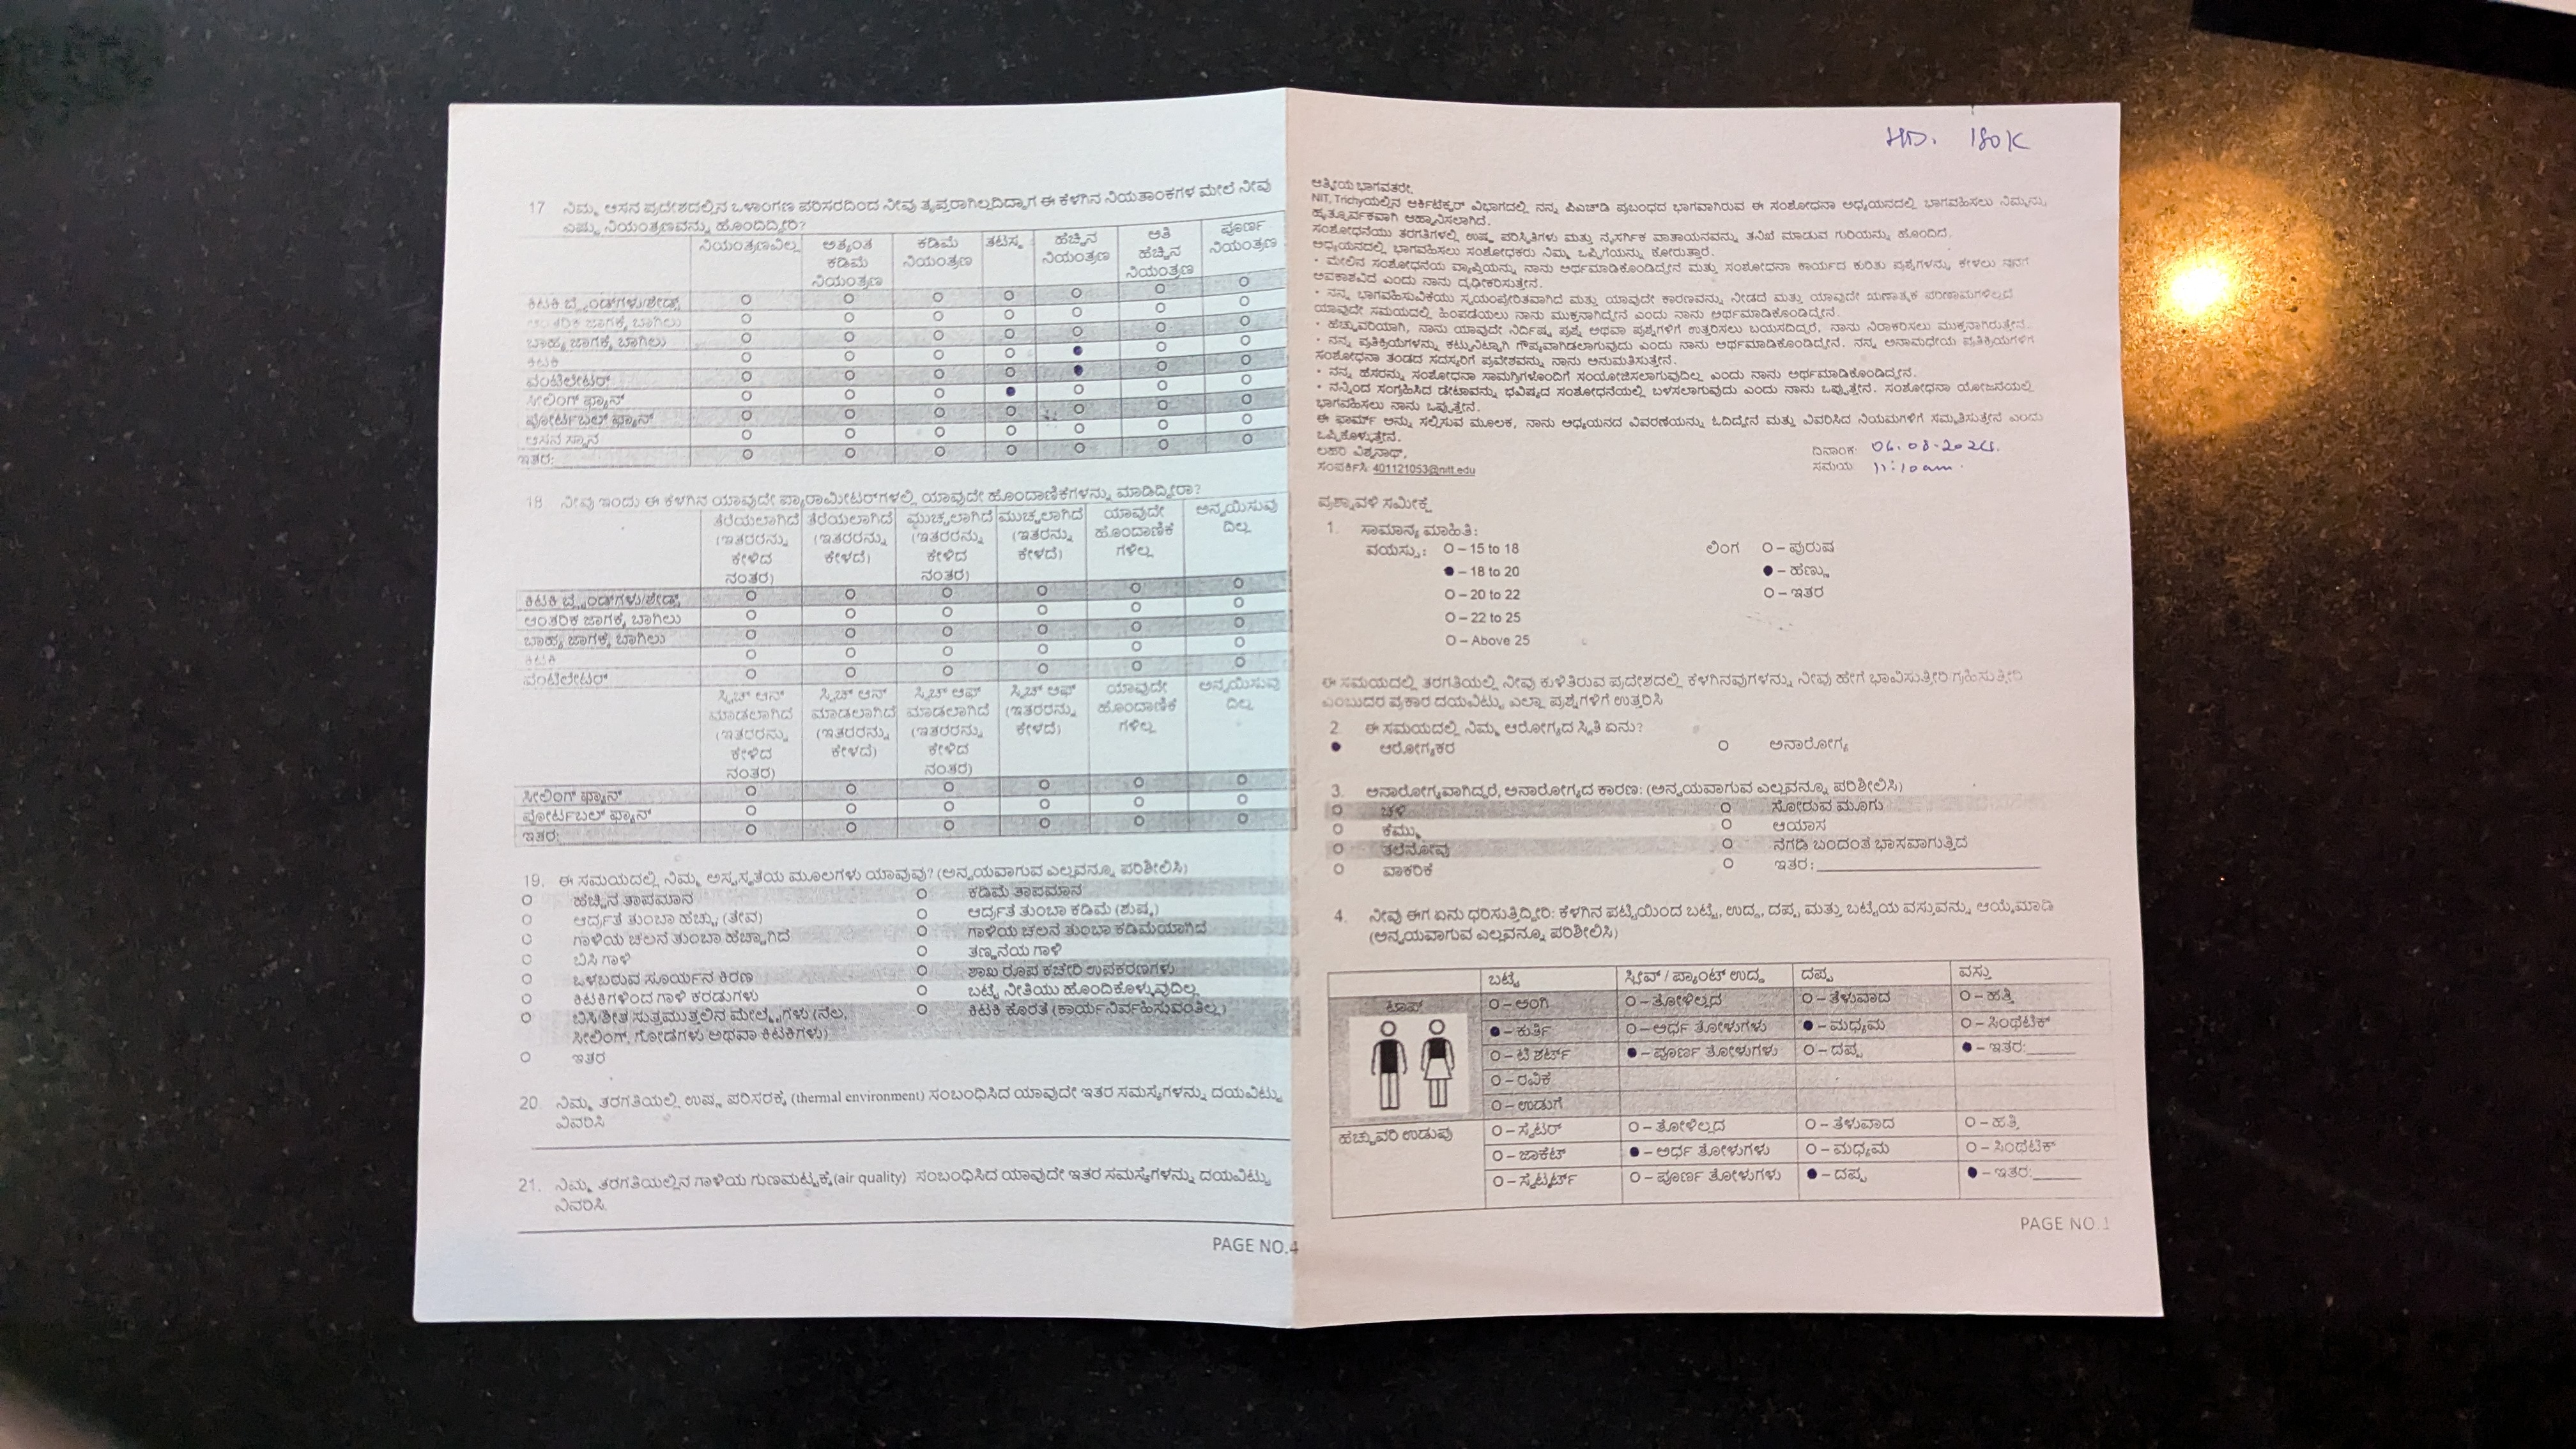 17 ನಿಮ್ಮ ಆಸನ ಪ್ರದೇಶದಲ್ಲಿನ ಒಳಾಂಗಣ ಪರಿಸರದಿಂದ ನೀವು ತೃಪ್ತರಾಗಿಲ್ಲದಿದ್ದಾಗ ಈ ಕೆಳಗಿನ ನಿಯತಾಂಕಗಳ ಮೇಲೆ ನೀವು
ಎಷ್ಟು ನಿಯಂತ್ರಣವನ್ನು ಹೊಂದಿದ್ದೀರಿ?
ನಿಯಂತ್ರಣವಿಲ್ಲ ಅತ್ಯಂತ ಕಡಿಮೆ ನಿಯಂತ್ರಣ ಕಡಿಮೆ ನಿಯಂತ್ರಣ ತಟಸ್ಥ ಹೆಚ್ಚಿನ ನಿಯಂತ್ರಣ ಅತಿ ಹೆಚ್ಚಿನ ನಿಯಂತ್ರಣ ಪೂರ್ಣ ನಿಯಂತ್ರಣ
ಕಿಟಕಿ ಬ್ಲೈಂಡ್‌ಗಳು/ಶೇಡ್ಸ್
ಆಂತರಿಕ ಜಾಗಕ್ಕೆ ಬಾಗಿಲು
ಬಾಹ್ಯ ಜಾಗಕ್ಕೆ ಬಾಗಿಲು
ಕಿಟಕಿ
ವೆಂಟಿಲೇಟರ್
ಸೀಲಿಂಗ್ ಫ್ಯಾನ್
ಪೋರ್ಟಬಲ್ ಫ್ಯಾನ್
ಆಸನ ಸ್ಥಾನ
ಇತರ:
18. ನೀವು ಇಂದು ಈ ಕೆಳಗಿನ ಯಾವುದೇ ಪ್ಯಾರಾಮೀಟರ್‌ಗಳಲ್ಲಿ ಯಾವುದೇ ಹೊಂದಾಣಿಕೆಗಳನ್ನು ಮಾಡಿದ್ದೀರಾ?
ತೆರೆಯಲಾಗಿದೆ (ಇತರರನ್ನು ಕೇಳಿದ ನಂತರ) ತೆರೆಯಲಾಗಿದೆ (ಇತರರನ್ನು ಕೇಳದೆ) ಮುಚ್ಚಲಾಗಿದೆ (ಇತರರನ್ನು ಕೇಳಿದ ನಂತರ) ಮುಚ್ಚಲಾಗಿದೆ (ಇತರನ್ನು ಕೇಳದೆ) ಯಾವುದೇ ಹೊಂದಾಣಿಕೆ ಗಳಿಲ್ಲ ಅನ್ವಯಿಸುವು ದಿಲ್ಲ
ಕಿಟಕಿ ಬ್ಲೈಂಡ್‌ಗಳು/ಶೇಡ್ಸ್
ಆಂತರಿಕ ಜಾಗಕ್ಕೆ ಬಾಗಿಲು
ಬಾಹ್ಯ ಜಾಗಕ್ಕೆ ಬಾಗಿಲು
ಕಿಟಕಿ
ವೆಂಟಿಲೇಟರ್
ಸ್ವಿಚ್ ಆನ್ ಮಾಡಲಾಗಿದೆ (ಇತರರನ್ನು ಕೇಳಿದ ನಂತರ) ಸ್ವಿಚ್ ಆನ್ ಮಾಡಲಾಗಿದೆ (ಇತರರನ್ನು ಕೇಳದೆ) ಸ್ವಿಚ್ ಆಫ್ ಮಾಡಲಾಗಿದೆ (ಇತರರನ್ನು ಕೇಳಿದ ನಂತರ) ಸ್ವಿಚ್ ಆಫ್ (ಇತರರನ್ನು ಕೇಳದೆ) ಯಾವುದೇ ಹೊಂದಾಣಿಕೆ ಗಳಿಲ್ಲ ಅನ್ವಯಿಸುವು ದಿಲ್ಲ
ಸೀಲಿಂಗ್ ಫ್ಯಾನ್
ಪೋರ್ಟಬಲ್ ಫ್ಯಾನ್
ಇತರ:
19. ಈ ಸಮಯದಲ್ಲಿ ನಿಮ್ಮ ಅಸ್ವಸ್ಥತೆಯ ಮೂಲಗಳು ಯಾವುವು? (ಅನ್ವಯವಾಗುವ ಎಲ್ಲವನ್ನೂ ಪರಿಶೀಲಿಸಿ)
O ಹೆಚ್ಚಿನ ತಾಪಮಾನ O ಕಡಿಮೆ ತಾಪಮಾನ
O ಆರ್ದ್ರತೆ ತುಂಬಾ ಹೆಚ್ಚು (ತೇವ) O ಆರ್ದ್ರತೆ ತುಂಬಾ ಕಡಿಮೆ (ಶುಷ್ಕ)
O ಗಾಳಿಯ ಚಲನೆ ತುಂಬಾ ಹೆಚ್ಚಾಗಿದೆ O ಗಾಳಿಯ ಚಲನೆ ತುಂಬಾ ಕಡಿಮೆಯಾಗಿದೆ
O ಬಿಸಿ ಗಾಳಿ O ತಣ್ಣನೆಯ ಗಾಳಿ
O ಒಳಬರುವ ಸೂರ್ಯನ ಕಿರಣ O ಶಾಖ ರೂಪ ಕಚೇರಿ ಉಪಕರಣಗಳು
O ಕಿಟಕಿಗಳಿಂದ ಗಾಳಿ ಕರಡುಗಳು O ಬಟ್ಟೆ ನೀತಿಯು ಹೊಂದಿಕೊಳ್ಳುವುದಿಲ್ಲ
O ಬಿಸಿ/ಶೀತ ಸುತ್ತಮುತ್ತಲಿನ ಮೇಲ್ಮೈಗಳು (ನೆಲ, O ಕಿಟಕಿ ಕೊರತೆ (ಕಾರ್ಯನಿರ್ವಹಿಸುವಂತಿಲ್ಲ)
ಸೀಲಿಂಗ್, ಗೋಡೆಗಳು ಅಥವಾ ಕಿಟಕಿಗಳು)
O ಇತರ
20. ನಿಮ್ಮ ತರಗತಿಯಲ್ಲಿ ಉಷ್ಣ ಪರಿಸರಕ್ಕೆ (thermal environment) ಸಂಬಂಧಿಸಿದ ಯಾವುದೇ ಇತರ ಸಮಸ್ಯೆಗಳನ್ನು ದಯವಿಟ್ಟು
ವಿವರಿಸಿ
21. ನಿಮ್ಮ ತರಗತಿಯಲ್ಲಿನ ಗಾಳಿಯ ಗುಣಮಟ್ಟಕ್ಕೆ(air quality) ಸಂಬಂಧಿಸಿದ ಯಾವುದೇ ಇತರ ಸಮಸ್ಯೆಗಳನ್ನು ದಯವಿಟ್ಟು
ವಿವರಿಸಿ.
PAGE NO.4
HD. 180K
ಆತ್ಮೀಯ ಭಾಗವತರೇ,
NIT, Trichyಯಲ್ಲಿನ ಆರ್ಕಿಟೆಕ್ಚರ್ ವಿಭಾಗದಲ್ಲಿ ನನ್ನ ಪಿಎಚ್‌ಡಿ ಪ್ರಬಂಧದ ಭಾಗವಾಗಿರುವ ಈ ಸಂಶೋಧನಾ ಅಧ್ಯಯನದಲ್ಲಿ ಭಾಗವಹಿಸಲು ನಿಮ್ಮನ್ನು
ಹೃತ್ಪೂರ್ವಕವಾಗಿ ಆಹ್ವಾನಿಸಲಾಗಿದೆ.
ಸಂಶೋಧನೆಯು ತರಗತಿಗಳಲ್ಲಿ ಉಷ್ಣ ಪರಿಸ್ಥಿತಿಗಳು ಮತ್ತು ನೈಸರ್ಗಿಕ ವಾತಾಯನವನ್ನು ತನಿಖೆ ಮಾಡುವ ಗುರಿಯನ್ನು ಹೊಂದಿದೆ.
ಅಧ್ಯಯನದಲ್ಲಿ ಭಾಗವಹಿಸಲು ಸಂಶೋಧಕರು ನಿಮ್ಮ ಒಪ್ಪಿಗೆಯನ್ನು ಕೋರುತ್ತಾರೆ.
• ಮೇಲಿನ ಸಂಶೋಧನೆಯ ವ್ಯಾಪ್ತಿಯನ್ನು ನಾನು ಅರ್ಥಮಾಡಿಕೊಂಡಿದ್ದೇನೆ ಮತ್ತು ಸಂಶೋಧನಾ ಕಾರ್ಯದ ಕುರಿತು ಪ್ರಶ್ನೆಗಳನ್ನು ಕೇಳಲು ನನಗೆ
ಅವಕಾಶವಿದೆ ಎಂದು ನಾನು ದೃಢೀಕರಿಸುತ್ತೇನೆ.
• ನನ್ನ ಭಾಗವಹಿಸುವಿಕೆಯು ಸ್ವಯಂಪ್ರೇರಿತವಾಗಿದೆ ಮತ್ತು ಯಾವುದೇ ಕಾರಣವನ್ನು ನೀಡದೆ ಮತ್ತು ಯಾವುದೇ ಋಣಾತ್ಮಕ ಪರಿಣಾಮಗಳಿಲ್ಲದೆ
ಯಾವುದೇ ಸಮಯದಲ್ಲಿ ಹಿಂಪಡೆಯಲು ನಾನು ಮುಕ್ತನಾಗಿದ್ದೇನೆ ಎಂದು ನಾನು ಅರ್ಥಮಾಡಿಕೊಂಡಿದ್ದೇನೆ.
• ಹೆಚ್ಚುವರಿಯಾಗಿ, ನಾನು ಯಾವುದೇ ನಿರ್ದಿಷ್ಟ ಪ್ರಶ್ನೆ ಅಥವಾ ಪ್ರಶ್ನೆಗಳಿಗೆ ಉತ್ತರಿಸಲು ಬಯಸದಿದ್ದರೆ, ನಾನು ನಿರಾಕರಿಸಲು ಮುಕ್ತನಾಗಿರುತ್ತೇನೆ.
• ನನ್ನ ಪ್ರತಿಕ್ರಿಯೆಗಳನ್ನು ಕಟ್ಟುನಿಟ್ಟಾಗಿ ಗೌಪ್ಯವಾಗಿಡಲಾಗುವುದು ಎಂದು ನಾನು ಅರ್ಥಮಾಡಿಕೊಂಡಿದ್ದೇನೆ. ನನ್ನ ಅನಾಮಧೇಯ ಪ್ರತಿಕ್ರಿಯೆಗಳಿಗೆ
ಸಂಶೋಧನಾ ತಂಡದ ಸದಸ್ಯರಿಗೆ ಪ್ರವೇಶವನ್ನು ನಾನು ಅನುಮತಿಸುತ್ತೇನೆ.
• ನನ್ನ ಹೆಸರನ್ನು ಸಂಶೋಧನಾ ಸಾಮಗ್ರಿಗಳೊಂದಿಗೆ ಸಂಯೋಜಿಸಲಾಗುವುದಿಲ್ಲ ಎಂದು ನಾನು ಅರ್ಥಮಾಡಿಕೊಂಡಿದ್ದೇನೆ.
• ನನ್ನಿಂದ ಸಂಗ್ರಹಿಸಿದ ಡೇಟಾವನ್ನು ಭವಿಷ್ಯದ ಸಂಶೋಧನೆಯಲ್ಲಿ ಬಳಸಲಾಗುವುದು ಎಂದು ನಾನು ಒಪ್ಪುತ್ತೇನೆ. ಸಂಶೋಧನಾ ಯೋಜನೆಯಲ್ಲಿ
ಭಾಗವಹಿಸಲು ನಾನು ಒಪ್ಪುತ್ತೇನೆ.
ಈ ಫಾರ್ಮ್ ಅನ್ನು ಸಲ್ಲಿಸುವ ಮೂಲಕ, ನಾನು ಅಧ್ಯಯನದ ವಿವರಣೆಯನ್ನು ಓದಿದ್ದೇನೆ ಮತ್ತು ವಿವರಿಸಿದ ನಿಯಮಗಳಿಗೆ ಸಮ್ಮತಿಸುತ್ತೇನೆ ಎಂದು
ಒಪ್ಪಿಕೊಳ್ಳುತ್ತೇನೆ.
ಲಹರಿ ವಿಶ್ವನಾಥ್, ದಿನಾಂಕ:
ಸಂಪರ್ಕಿಸಿ 401121053@nitt.edu ಸಮಯ: 11:10am.
ಪ್ರಶ್ನಾವಳಿ ಸಮೀಕ್ಷೆ
1. ಸಾಮಾನ್ಯ ಮಾಹಿತಿ:
ವಯಸ್ಸು: O – 15 to 18 ಲಿಂಗ O – ಪುರುಷ
● – 18 to 20 ● – ಹೆಣ್ಣು
O – 20 to 22 O – ಇತರ
O – 22 to 25
O – Above 25
ಈ ಸಮಯದಲ್ಲಿ ತರಗತಿಯಲ್ಲಿ ನೀವು ಕುಳಿತಿರುವ ಪ್ರದೇಶದಲ್ಲಿ ಕೆಳಗಿನವುಗಳನ್ನು ನೀವು ಹೇಗೆ ಭಾವಿಸುತ್ತೀರಿ/ಗ್ರಹಿಸುತ್ತೀರಿ
ಎಂಬುದರ ಪ್ರಕಾರ ದಯವಿಟ್ಟು ಎಲ್ಲಾ ಪ್ರಶ್ನೆಗಳಿಗೆ ಉತ್ತರಿಸಿ
2. ಈ ಸಮಯದಲ್ಲಿ ನಿಮ್ಮ ಆರೋಗ್ಯದ ಸ್ಥಿತಿ ಏನು?
● ಆರೋಗ್ಯಕರ O ಅನಾರೋಗ್ಯ
3. ಅನಾರೋಗ್ಯವಾಗಿದ್ದರೆ, ಅನಾರೋಗ್ಯದ ಕಾರಣ: (ಅನ್ವಯವಾಗುವ ಎಲ್ಲವನ್ನೂ ಪರಿಶೀಲಿಸಿ)
O ಚಳಿ O ಸೋರುವ ಮೂಗು
O ಕೆಮ್ಮು O ಆಯಾಸ
O ತಲೆನೋವು O ನೆಗಡಿ ಬಂದಂತೆ ಭಾಸವಾಗುತ್ತಿದೆ
O ವಾಕರಿಕೆ O ಇತರ:
4. ನೀವು ಈಗ ಏನು ಧರಿಸುತ್ತಿದ್ದೀರಿ: ಕೆಳಗಿನ ಪಟ್ಟಿಯಿಂದ ಬಟ್ಟೆ, ಉದ್ದ, ದಪ್ಪ ಮತ್ತು ಬಟ್ಟೆಯ ವಸ್ತುವನ್ನು ಆಯ್ಕೆಮಾಡಿ
(ಅನ್ವಯವಾಗುವ ಎಲ್ಲವನ್ನೂ ಪರಿಶೀಲಿಸಿ)
ಬಟ್ಟೆ ಸ್ಲೀವ್ / ಪ್ಯಾಂಟ್ ಉದ್ದ ದಪ್ಪ ವಸ್ತು
ಟಾಪ್ O – ಅಂಗಿ O – ತೋಳಿಲ್ಲದ O – ತೆಳುವಾದ O – ಹತ್ತಿ
● – ಕುರ್ತಿ O – ಅರ್ಧ ತೋಳುಗಳು ● – ಮಧ್ಯಮ O – ಸಿಂಥೆಟಿಕ್
O – ಟಿ ಶರ್ಟ್ ● – ಪೂರ್ಣ ತೋಳುಗಳು O – ದಪ್ಪ ● – ಇತರ:
O – ರವಿಕೆ
O – ಉಡುಗೆ
ಹೆಚ್ಚುವರಿ ಉಡುಪು O – ಸ್ವೆಟರ್ O – ತೋಳಿಲ್ಲದ O – ತೆಳುವಾದ O – ಹತ್ತಿ
O – ಜಾಕೆಟ್ ● – ಅರ್ಧ ತೋಳುಗಳು O – ಮಧ್ಯಮ O – ಸಿಂಥೆಟಿಕ್
O – ಸ್ವೆಟ್ಶರ್ಟ್ O – ಪೂರ್ಣ ತೋಳುಗಳು ● – ದಪ್ಪ ● – ಇತರ:
PAGE NO.1